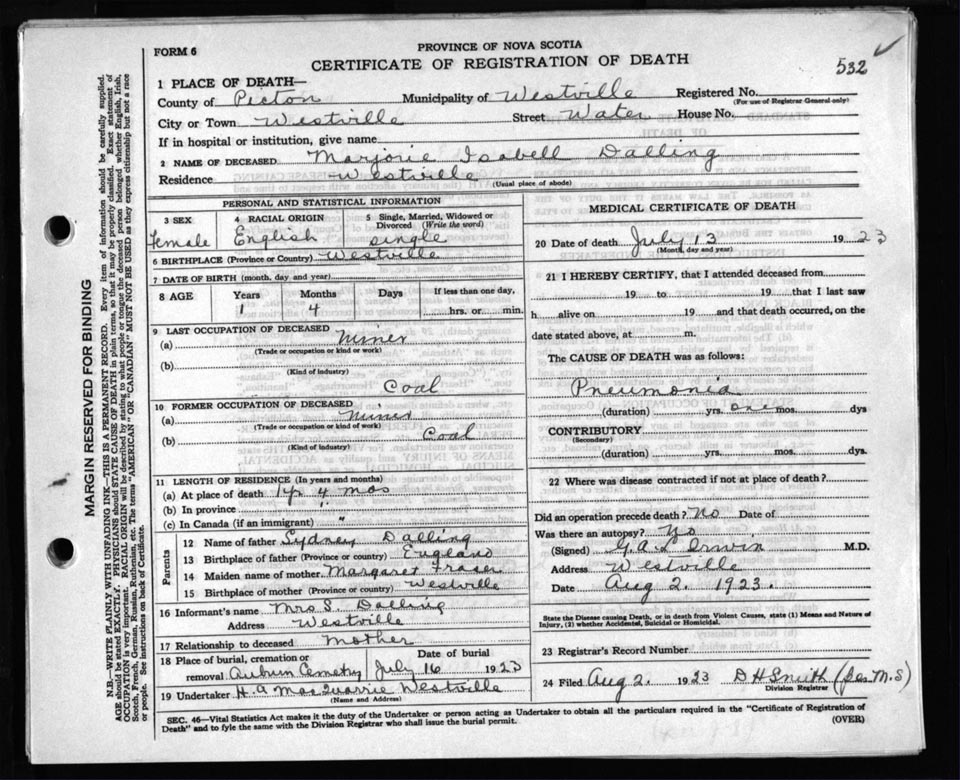 FORM 6
PROVINCE OF NOVA SCOTIA
CERTIFICATE OF REGISTRATION OF DEATH
532
1 PLACE OF DEATH—
County of Picton Municipality of Westville Registered No.
(For use of Registrar General only)
City or Town Westville Street Water House No.
If in hospital or institution, give name
2 NAME OF DECEASED Marjorie Isabell Dalling
Residence Westville
(Usual place of abode)
PERSONAL AND STATISTICAL INFORMATION
3 SEX 4 RACIAL ORIGIN 5 Single, Married, Widowed or Divorced (Write the word)
Female English single
6 BIRTHPLACE (Province or Country) Westville
7 DATE OF BIRTH (month, day and year)
8 AGE Years Months Days If less than one day,
1 4 hrs. or min.
9 LAST OCCUPATION OF DECEASED
(a) Miner
(Trade or occupation or kind or work)
(b)
(Kind of industry)
Coal
10 FORMER OCCUPATION OF DECEASED
(a) Miner
(Trade or occupation or kind or work)
(b) Coal
(Kind of industry)
11 LENGTH OF RESIDENCE (In years and months)
(a) At place of death 1 yr 4 mos
(b) In province "
(c) In Canada (if an immigrant) "
Parents
12 Name of father Sydney Dalling
13 Birthplace of father (Province or country) England
14 Maiden name of mother Margaret Fraser
15 Birthplace of mother (Province or country) Westville
16 Informant's name Mrs S. Dalling
Address Westville
17 Relationship to deceased Mother
18 Place of burial, cremation or removal Date of burial
Auburn Cemetry July 16 1923
19 Undertaker H. A MacQuarrie Westville
(Name and Address)
MEDICAL CERTIFICATE OF DEATH
20 Date of death July 13 1923
(Month, day and year)
21 I HEREBY CERTIFY, that I attended deceased from
19 to 19 that I last saw
h alive on 19 and that death occurred, on the
date stated above, at m.
The CAUSE OF DEATH was as follows:
Pneumonia
(duration) yrs. one mos. dys
CONTRIBUTORY
(Secondary)
(duration) yrs. mos. dys.
22 Where was disease contracted if not at place of death?
Did an operation precede death? No Date of
Was there an autopsy? No
(Signed) G. A. L Irwin M.D.
Address Westville
Date Aug 2. 1923.
State the Disease causing Death, or in death from Violent Causes, state (1) Means and Nature of
Injury, (2) whether Accidental, Suicidal or Homicidal.
23 Registrar's Record Number
24 Filed Aug 2. 1923 D H Smith (per M.S)
Division Registrar
SEC. 46—Vital Statistics Act makes it the duty of the Undertaker or person acting as Undertaker to obtain all the particulars required in the "Certificate of Registration of
Death" and to fyle the same with the Division Registrar who shall issue the burial permit. (OVER)
MARGIN RESERVED FOR BINDING
N.B.—WRITE PLAINLY WITH UNFADING INK—THIS IS A PERMANENT RECORD. Every item of information should be carefully supplied.
AGE should be stated EXACTLY. PHYSICIANS should STATE CAUSE OF DEATH in plain terms, so that it may be properly classified. Exact statement of
OCCUPATION is very important. RACIAL ORIGIN will be described by stating to what people or tongue the deceased person belonged whether English, Irish,
Scotch, French, German, Russian, Ruthenian, etc. The terms "AMERICAN" OR "CANADIAN" MUST NOT BE USED as they express citizenship but not a race
or people. See instructions on back of Certificate.